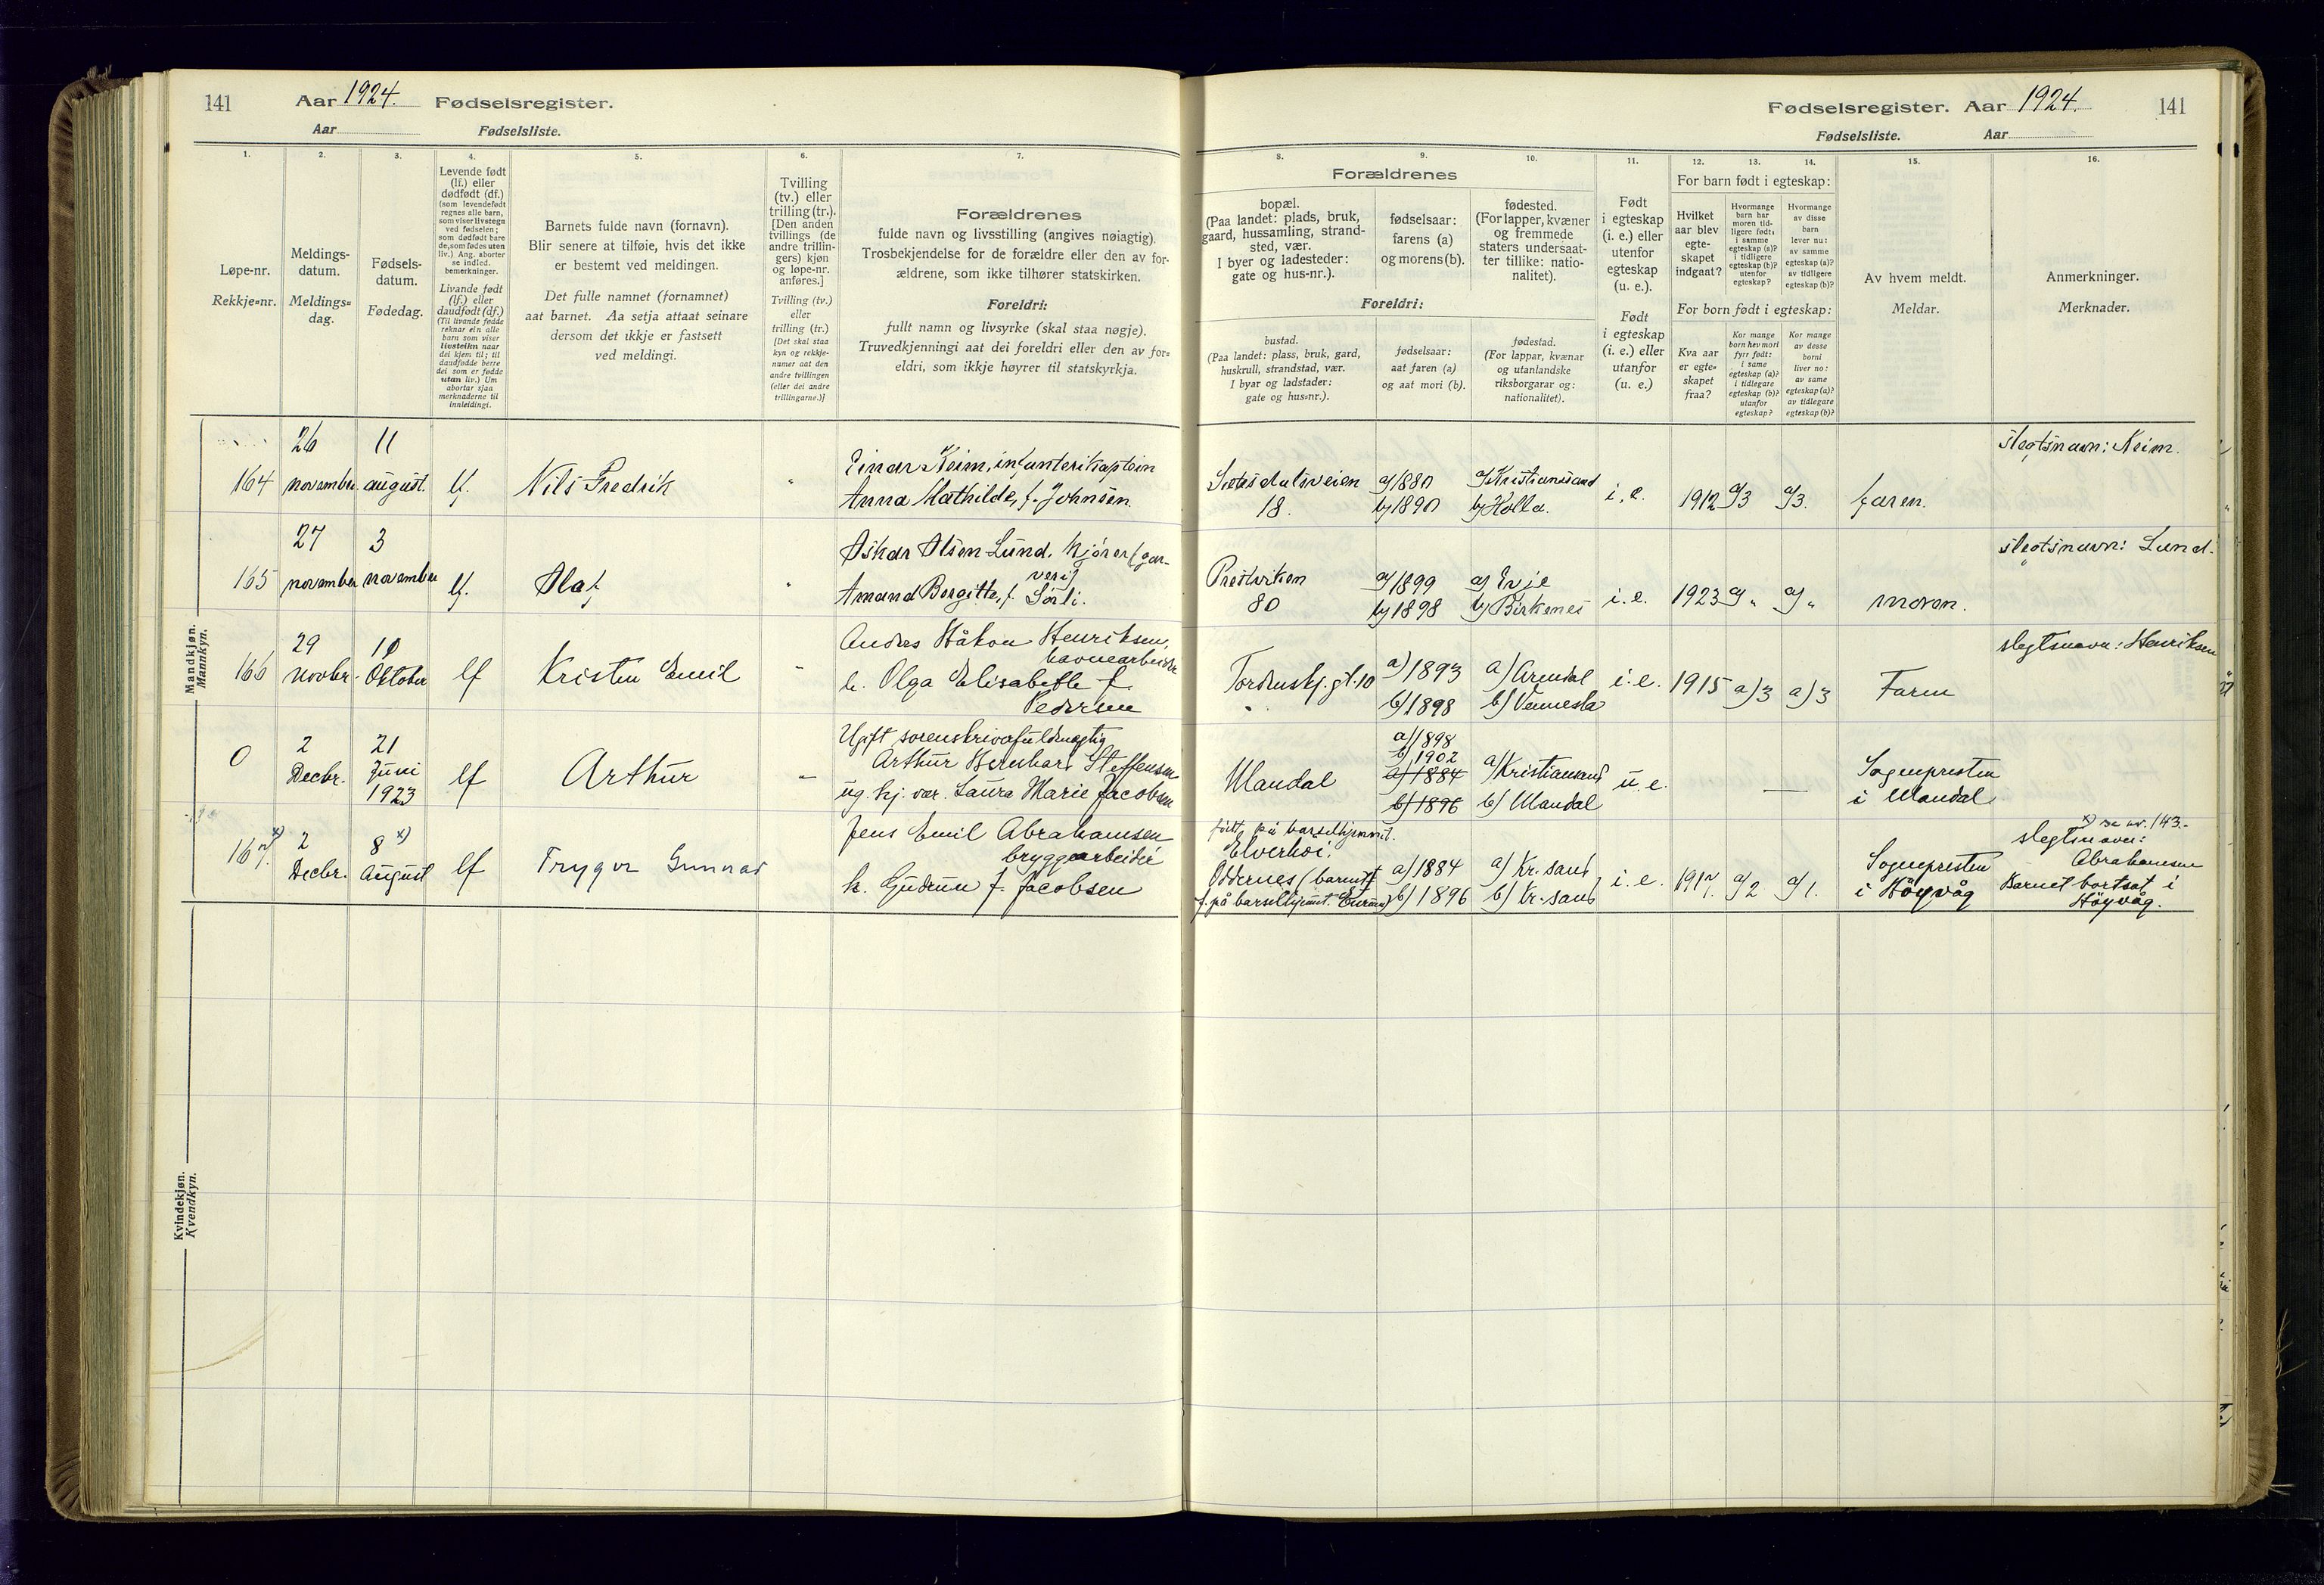 141 Aar 1924. Fødselsregister.
Aar Fødselsliste.
Fødselsregister. Aar 1924. 141
Fødselsliste. Aar
1.
Løpe-nr.
Rekkje-nr.
2.
Meldings-
datum.
Meldings-
dag.
3.
Fødsels-
datum.
Fødedag.
4.
Levende født
(lf.) eller
dødfødt (df.)
(som levendefødt
regnes alle barn,
som viser livstegn
ved fødselen;
som dødfødt bare
de, som fødes uten
liv.) Ang. aborter
se indled.
bemerkninger.
Livande født
(lf.) eller
daudfødt (df.)
(Til livande fødde
reknar ein alle
barn som viser
livsteikn naar
dei kjem til; til
daudfødde berre
dei som er fødde
utan liv.) Um
abortar sjaa
merknaderne til
innleidingi.
5.
Barnets fulde navn (fornavn).
Blir senere at tilføie, hvis det ikke
er bestemt ved meldingen.
Det fulle namnet (fornamnet)
aat barnet. Aa setja attaat seinare
dersom det ikkje er fastsett
ved meldingi.
6.
Tvilling
(tv.) eller
trilling (tr.).
[Den anden
tvillings (de
andre trillin-
gers) kjøn
og løpe-nr.
anføres.]
Tvilling (tv.)
eller
trilling (tr.)
[Det skal staa
kyn og rekkje-
numer aat den
andre tvillingen
(eller dei andre
trillingarne.)]
7.
Forældrenes
fulde navn og livsstilling (angives nøiagtig).
Trosbekjendelse for de forældre eller den av for-
ældrene, som ikke tilhører statskirken.
Foreldri:
fullt namn og livsyrke (skal staa nøgje).
Truvedkjenningi aat dei foreldri eller den av for-
eldri, som ikkje høyrer til statskyrkja.
8. 9. 10.
Forældrenes
bopæl.
(Paa landet: plads, bruk,
gaard, hussamling, strand-
sted, vær.
I byer og ladesteder:
gate og hus-nr.).
fødselsaar:
farens (a)
og morens (b).
fødested.
(For lapper, kvæner
og fremmede
staters undersaat-
ter tillike: natio-
nalitet).
Foreldri:
bustad.
(Paa landet: plass, bruk, gard,
huskrull, strandstad, vær.
I byar og ladstader:
gate og hus-nr.).
fødselsaar:
aat faren (a)
og aat mori (b).
fødestad.
(For lappar, kvænar
og utanlandske
riksborgarar og:
nationalitet).
11.
Født
i egteskap
(i. e.) eller
utenfor
egteskap
(u. e.).
Født
i egteskap
(i. e.) eller
utanfor
(u. e.)
12. 13. 14.
For barn født i egteskap:
Hvilket
aar blev
egte-
skapet
indgaat?
Hvormange
barn har
moren tid-
ligere født:
i samme
egteskap (a)?
i tidligere
egteskap (b)?
utenfor
egteskap?
Hvormange
av disse
barn
lever nu:
av samme
egteskap (a)?
av tidligere
egteskap (b)?
For born født i egteskap:
Kva aar
er egte-
skapet
fraa?
Kor mange
born hev mori
fyrr født:
i same
egteskap (a)?
i tidlegare
egteskap (b)?
utanfor
egteskap?
Kor mange
av desse
borni
liver no:
av same
egteskap (a)?
av tidlegare
egteskap (b)?
15.
Av hvem meldt.
Meldar.
16.
Anmerkninger.
Merknader.
Mandkjøn.
Mannkyn.
164 26 november. 11 august. lf. Nils Fredrik "
Einar Keim, infanterikaptein
Anna Mathilde, f. Johnsen.
Setesdalsveien
18.
a) 1880
b) 1890
a) Kristianssand
b) Holla.
i. e. 1912 a) 3 a) 3. faren.
slegtsnavn: Keim.
165 27 november 3 november lf. Olaf "
Oskar Olsen Lund, kjører (gar-
veri)
Amanda Bergitte, f. Sørli.
Prestviken
80
a) 1899
b) 1898
a) Evje
b) Birkenes
i. e. 1923 a) " a) " moren.
slegtsnavn: Lund.
166 29 novbr. 10 Oktober lf Kristen Emil "
Anders Håkon Henriksen,
havnearbeider
h. Olga Elisabeth f.
Pedersen
Tordenskj. gt. 10
a) 1893
b) 1898
a) Arendal
b) Vennesla
i. e. 1915 a) 3 a) 3 Faren
slegtsnavn: Henriksen
0 2 Decbr. 21 Juni 1923 lf Arthur –
Ugift sorenskriverfuldmægtig
Arthur Bernhard Steffensen
ug. hj. vær. Laura Marie Jacobsen
Mandal
a) 1898
b) 1902
a) 1884
b) 1896
a) Kristiansand
b) Mandal
u. e. —
Sognepresten
i Mandal.
167. x) 2 Decbr. 8 x) August lf Trygve Gunnar
Jens Emil Abrahamsen
bryggearbeider
h. Gudrun f. Jacobsen
født på barselhjemmet.
Elverhøi.
Oddernes (barnet
f. på barselhjemmet
a) 1884
b) 1896
a) Kr. sand
b) Kr. sand
i. e. 1917. a) 2 a) 1.
Sognepresten
i Höyvåg
x) se nr. 143.
slegtsnavn:
Abrahamsen
Barnet bortsat i
Höyvåg.
Kvindekjøn.
Kvendkyn.